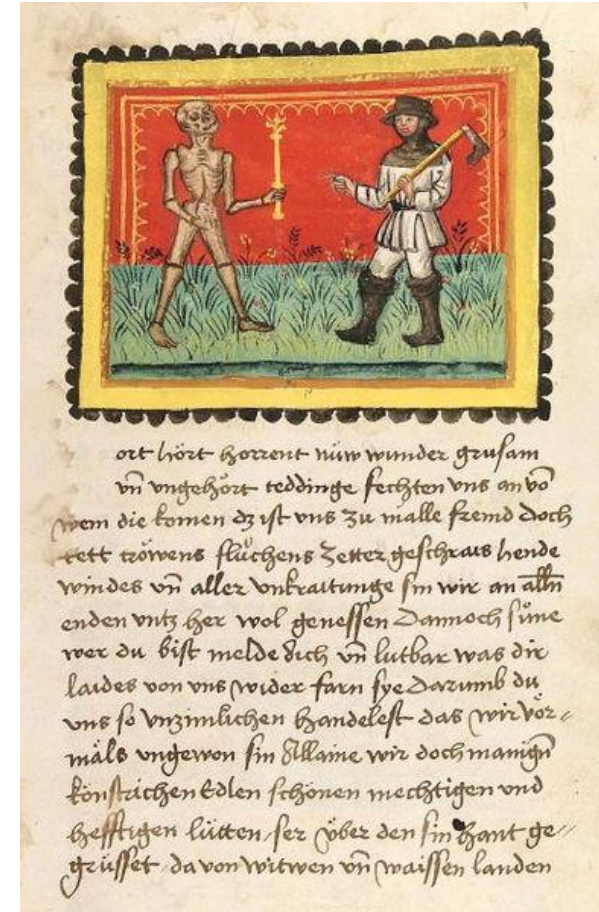 ort hört horrent nüw wunder grusam
vn̄ vngehört teddinge fechten vns an vō
wem die komen dz ist vns zu malle fremd doch
tett tröwens flůchens zetter geschrais hende
windes vn̄ aller vnkraitunge sin wir an alln̄
enden vntz her wol genessen Dannoch süne
wer du bist melde dich vn̄ lutbar was dir
laides von vns wider farn sye Darumb du
vns so vnzimlichen handelest das wir vör⸗
mäls vngewon sin Allaine wir doch manign̄
könstrichen Edlen schönen mechtigen vnd
hefftigen lütten ser über den hant ge⸗
grüsset da von witwen vn̄ waissen landen